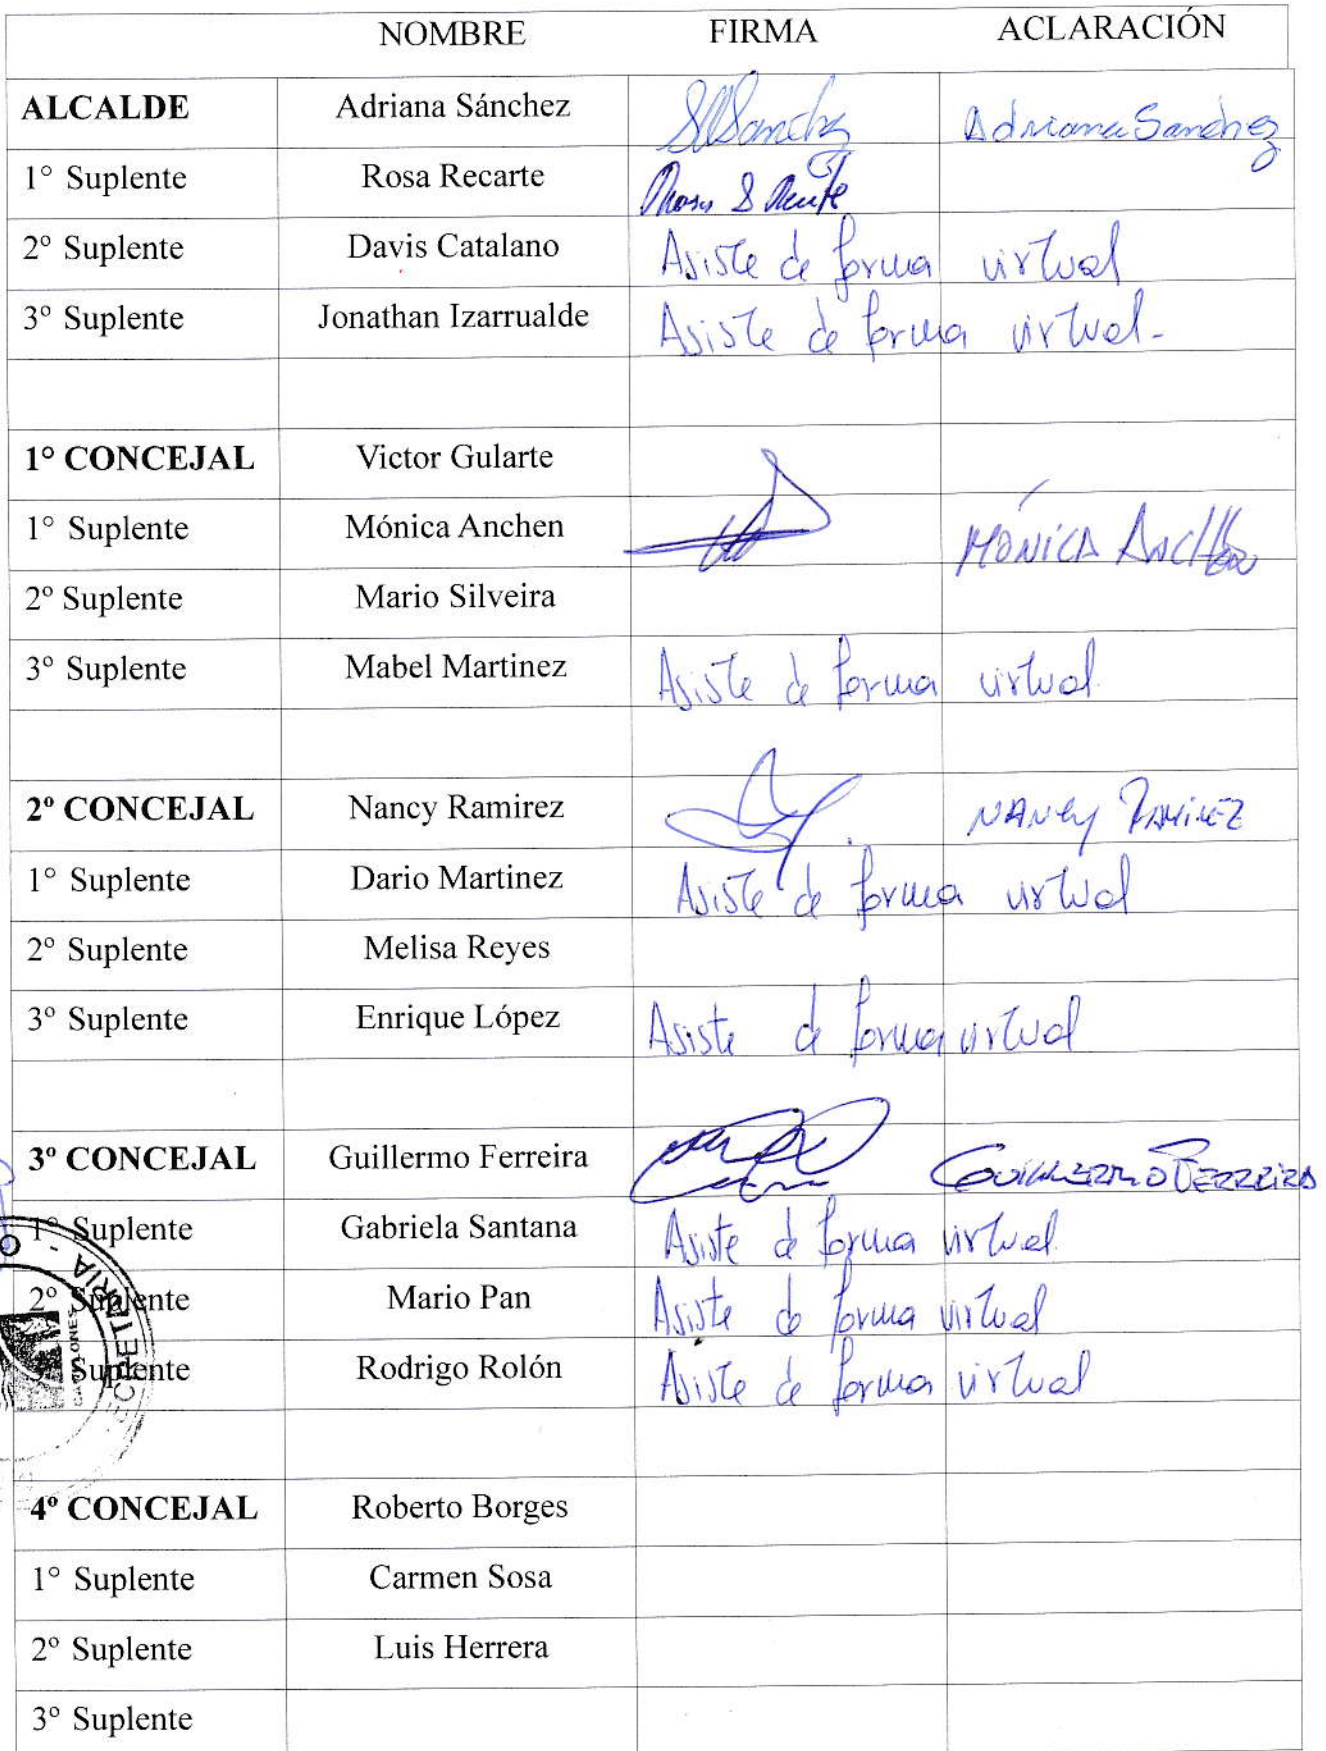 NOMBRE FIRMA ACLARACIÓN
ALCALDE Adriana Sánchez Adriana Sanchez
1° Suplente Rosa Recarte
2º Suplente Davis Catalano Asiste de forma virtual
3º Suplente Jonathan Izarrualde Asiste de forma virtual-
1° CONCEJAL Victor Gularte
1° Suplente Mónica Anchen MÓNICA ANCHEN
2º Suplente Mario Silveira
3º Suplente Mabel Martinez Asiste de forma virtual
2º CONCEJAL Nancy Ramirez NANCY RAMIREZ
1° Suplente Dario Martinez Asiste de forma virtual
2º Suplente Melisa Reyes
3º Suplente Enrique López Asiste de forma virtual
3º CONCEJAL Guillermo Ferreira GUILLERMO FERREIRA
1° Suplente Gabriela Santana Asiste de forma virtual
2º Suplente Mario Pan Asiste de forma virtual
Suplente Rodrigo Rolón Asiste de forma virtual
4º CONCEJAL Roberto Borges
1° Suplente Carmen Sosa
2º Suplente Luis Herrera
3º Suplente